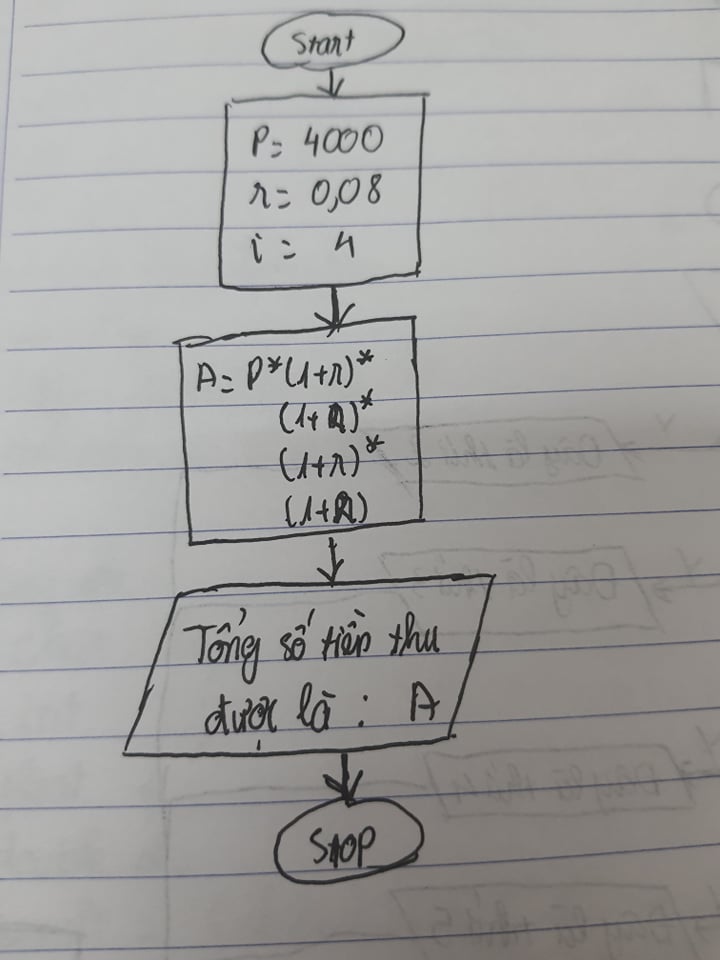 Start
P= 4000
r= 0,08
i= 4
A= P*(1+r)*
(1+r)*
(1+r)*
(1+r)
Tổng số tiền thu
được là : A
Stop